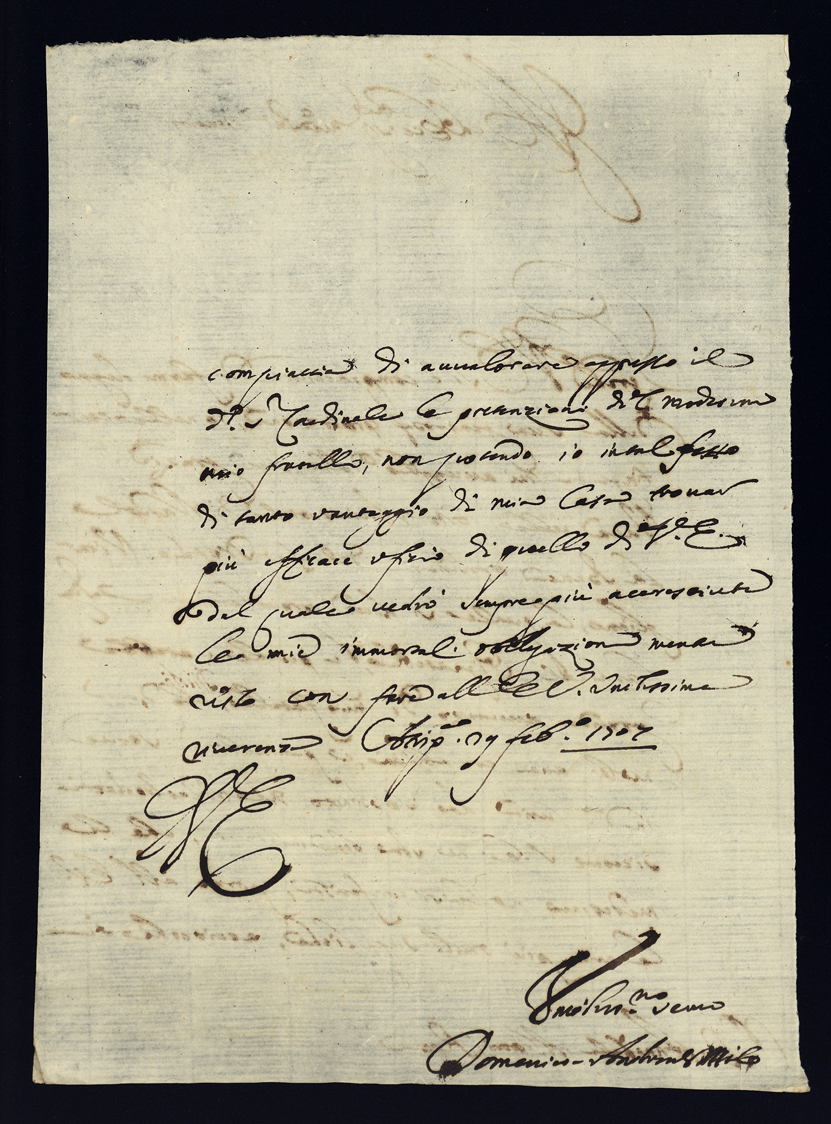 compiaccia di auualorare appresso il
d.º Sʳ Cardinale le pretenzioni di medesimo
mio fratello, non potendo io in tal fatto
di tanto vantaggio di mia Casa trouar
più efficace ufizio di quello di V. E.
dal quale uedrò sempre più accresciute
le mie immortali obligazioni mentre
resto con fare all' E V. Umilissima
riuerenza 29 feb.º 1707
VE
Umiliss.mo Seruo
Domenico Andrea Milo